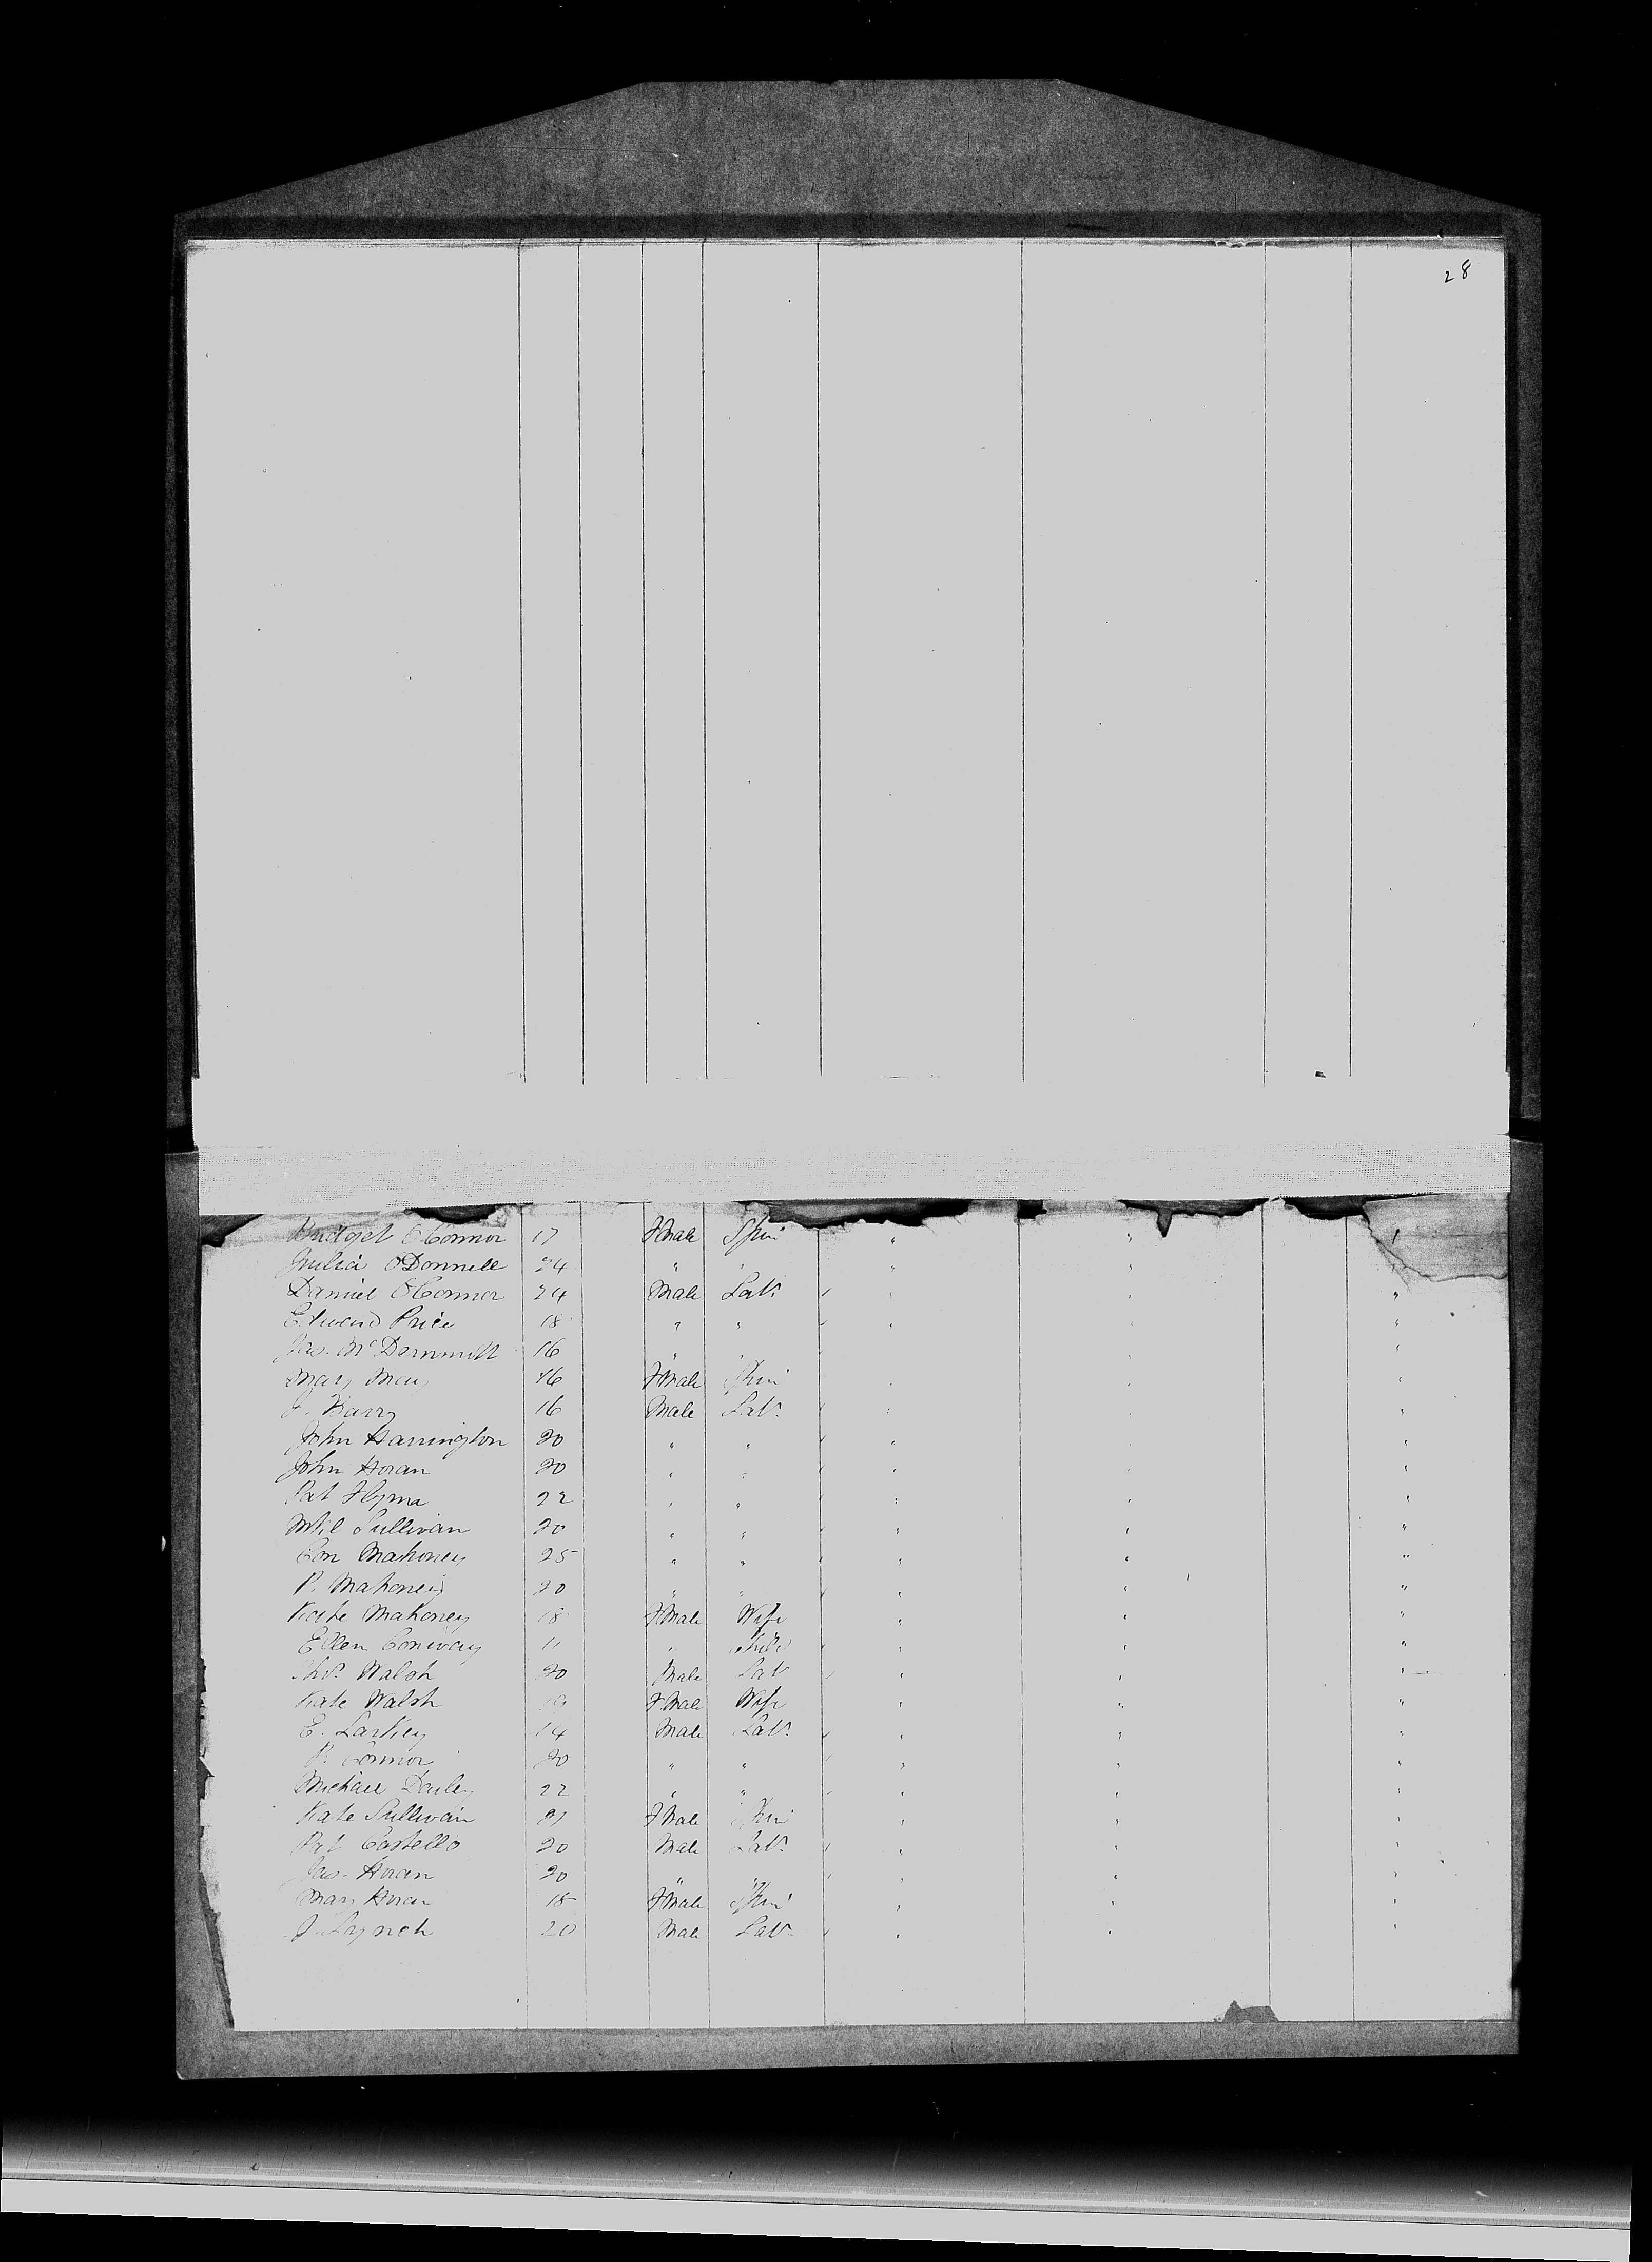 28
Bridget O'Connor 17 F Male Spin " " "
Julia O'Donnell 24 " " " "
Daniel O'Connor 24 Male Labr " " "
Edward Price 18 " " " " "
Jas. McDermmitt 16 " " " "
Mary May 16 F Male Spin " " "
J. Barry 16 Male Labr " " "
John Harrington 20 " " " " "
John Horan 20 " " " " "
Pat 22 " " " " "
Mhl Sullivan 20 " " " " "
Con Mahoney 25 " " " " "
P. Mahoney 20 " " " " "
Kate Mahoney 18 F Male Wife " " "
Ellen Conway 11 " Child " " "
Thos. Walsh 20 Male Labr " " "
Kate Walsh 19 F Male Wife " " "
E. Larkey 14 Male Labr " " "
P. Connor 20 " " " " "
Michael Dailey 22 " " " " "
Kate Sullivan F Male Spin " " "
Pat Costello 20 Male Labr " " "
Jas. Horan 20 " " " " "
Mary Horan 18 F Male Spin " " "
J. Lynch 20 Male Labr " " "